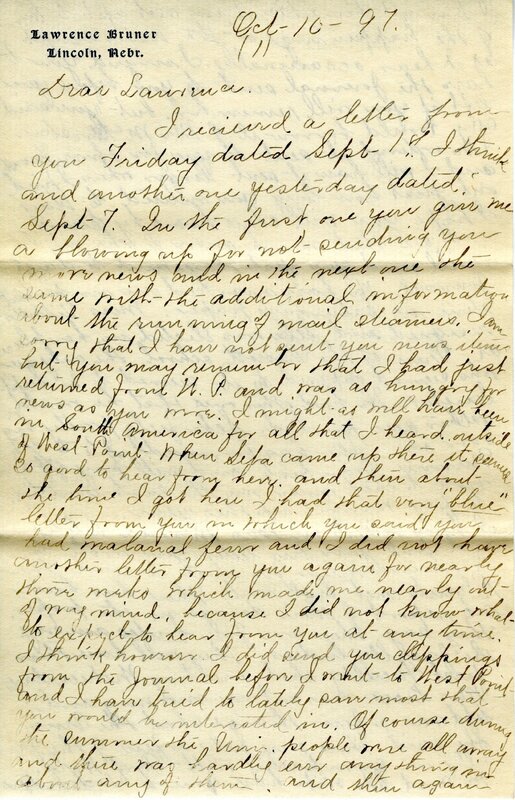 Lawrence Bruner
Lincoln, Nebr.
Oct-10-97.
11
Dear Lawrence.
I recieved a letter from
you Friday dated Sept-1st I think
and another one yesterday dated,
Sept 7. In the first one you give me
a blowing up for not sending you
more news and in the next one the
same with the additional information
about the running of mail steamers. I am
sorry that I have not sent you news items
but you may remember that I had just
returned from W. P. and was as hungry for
news as you were. I might as well have been
in South America for all that I heard outside
of West Point. When came up there it seemed
so good to hear from her. and then about
the time I got here I had that very "blue"
letter from you in which you said you
had malarial fever and I did not have
another letter from you again for nearly
three weeks which made me nearly out
of my mind, because I did not know what
to expect to hear from you at any time.
I think however I did send you clippings
from the Journal before I went to West Point
and I have tried to lately save most that
you would be interested in. Of course during
the summer the Uni. people were all away
and there was hardly ever anything in
about any of them. and then again